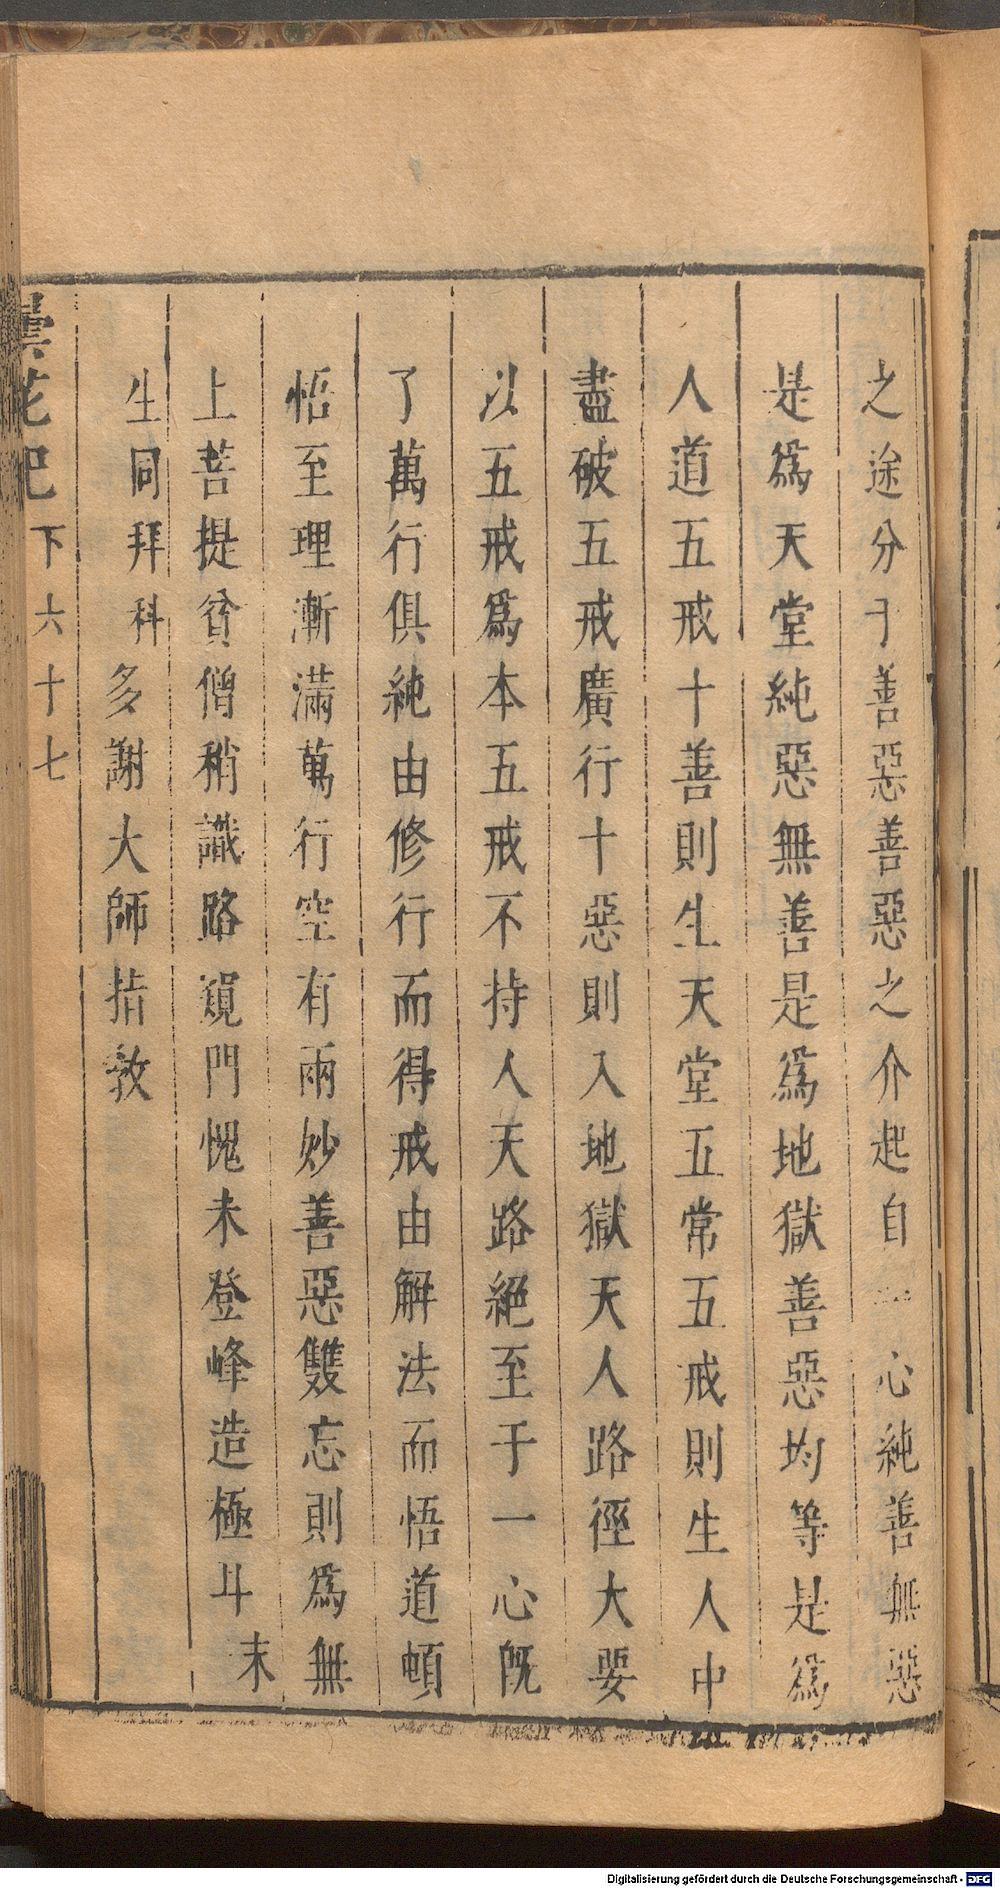 之途分于善惡善惡之介起自一心純善無惡
是爲天堂純惡無善是爲地獄善惡均等是爲
人道五戒十善則生天堂五常五戒則生人中
盡破五戒廣行十惡則入地獄天人路徑大要
以五戒爲本五戒不持人天路絕至于一心旣
了萬行俱純由修行而得戒由解法而悟道頓
悟至理漸滿萬行空有兩妙善惡雙忘則爲無
上菩提貧僧稍識路窺門愧未登峰造極斗末
生同拜科多謝大師指敎
曇花記
下六十七
Digitalisierung gefördert durch die Deutsche Forschungsgemeinschaft - DFG